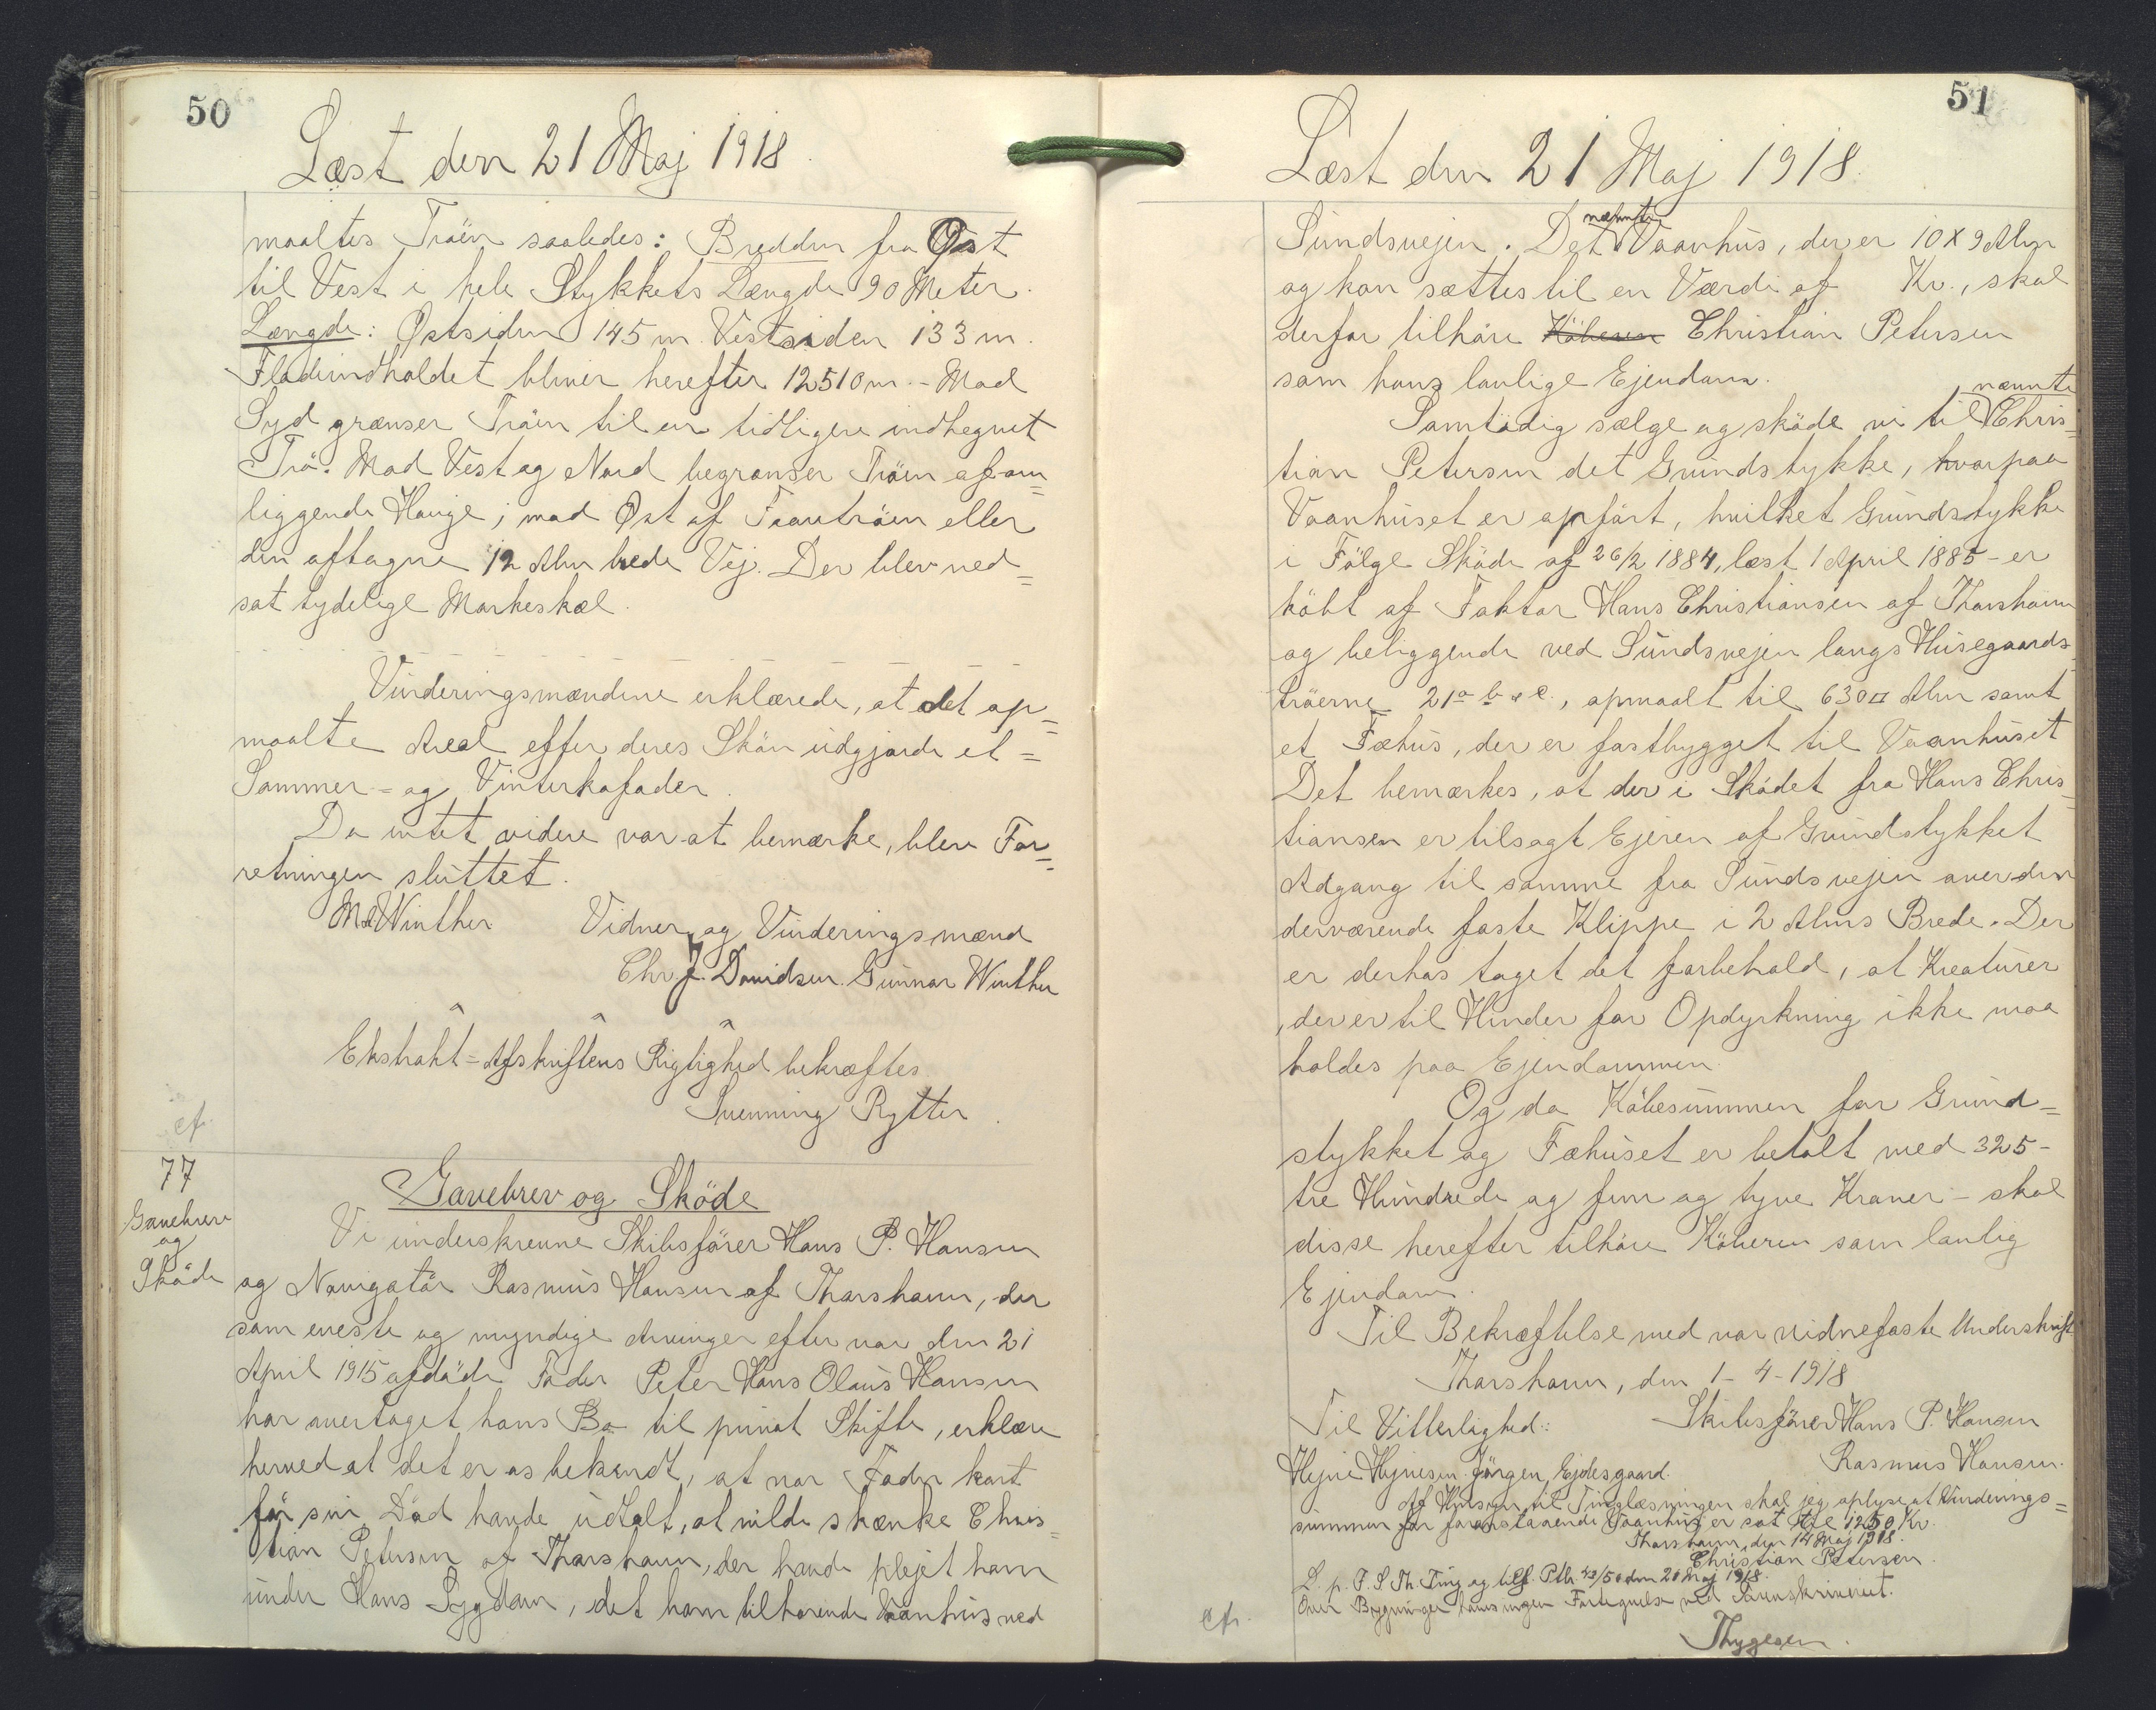 50
Læst den 21 Maj 1918.
maaltes Tröen saaledes: Bredden fra Øst
til Vest i hele Stykkets Længde 90 Meter.
Længde: Østsiden 145 m. Vestsiden 133 m.
Fladeindholdet bliver herefter 12510 m. - Mod
Syd grænser Tröen til en tidligere indhegnet
Trö. Mod Vest og Nord begrænser Tröen af om=
liggende Hauge; mod Øst af Traen eller
den aftagne 12 Alen brede Vej. Der blev ned=
sat tydelige Markeskæl.
Vurderingsmændene erklærede, at det op=
maalte Areal efter deres Skön udgjorde et=
Sommer= og Vinterkofoder.
Da intet videre var at bemærke, blev For=
retningen sluttet.
M Winther Vidner og Vurderingsmænd
Chr. J. Davidsen. Gunnar Winther
Ekstrakt=Afskriftens Rigtighed bekræftes
Svenning Rytter.
cf.
77
Gavebrev
og
Sköde
Gavebrev og Sköde
Vi underskrevne Skibsförer Hans P. Hansen
og Navigatör Rasmus Hansen af Thorshavn, der
som eneste og myndige Arvinger efter vor den 21
April 1915 afdöde Fader Peter Hans Olaus Hansen
har overtaget hans Bo til privat Skifte, erklære
herved at det er os bekendt, at vor Fader kort
för sin Död havde udtalt, at vilde skænke Chris=
tian Petersen af Thorshavn, der havde plejet ham
under Hans Sygdom, det ham tilhörende Vaanhus ved
51
Læst den 21 Maj 1918.
Sundsvejen. Det nævnte Vaanhus, der er 10 X 9 Alen
og kan sættes til en Værdi af Kr., skal
derfor tilhöre Köberen Christian Petersen
som hans lovlige Ejendom.
Samtidig sælge og sköde vi til nævnte Chris=
tian Petersen det Grundstykke, hvorpaa
Vaanhuset er opfört, hvilket Grundstykke
i Fölge Sköde af 26/2 1884, læst 1 April 1885 - er
köbt af Faktor Hans Christiansen af Thorshavn
og beliggende ved Sundsvejen langs Husegaards=
tröerne 21 a b & c., opmaalt til 630 □ Alen samt
et Fæhus, der er fastbygget til Vaanhuset
Det bemærkes, at der i Sködet fra Hans Chris=
tiansen er tilsagt Ejeren af Grundstykket
Adgang til samme fra Sundsvejen over den
derværende faste Klippe i 2 Alens Brede. Der
er derhos taget det forbehold, at Kreaturer
, der er til Hinder for Opdyrkning ikke maa
holdes paa Ejendommen.
Og da Köbesummen for Grund=
stykket og Fæhuset er betalt med 325 -
tre Hundrede og fem og tyve Kroner - skal
disse herefter tilhöre Köberen som lovlig
Ejendom.
Til Bekræftelse med vor vidnefaste Underskrift
Thorshavn, den 1 - 4 - 1918
Til Vitterlighed: Skibsförer Hans P. Hansen
Hejni Hejnesen. Jörgen Ejdesgaard. Rasmus Hansen.
Af Hensyn til Tinglæsningen skal jeg oplyse at Vurderings=
summen for foranstaaende Vaanhus er sat til 1250 Kr.
Thorshavn, den 14 Maj 1918.
Christian Petersen.
L. p. F. S. Th. Ting og tilf. Ptb. 43/50 den 21 Maj 1918.
Over Bygninger haves ingen Fortegnelse ved Sorenskriveriet.
Thygesen.
cfr.